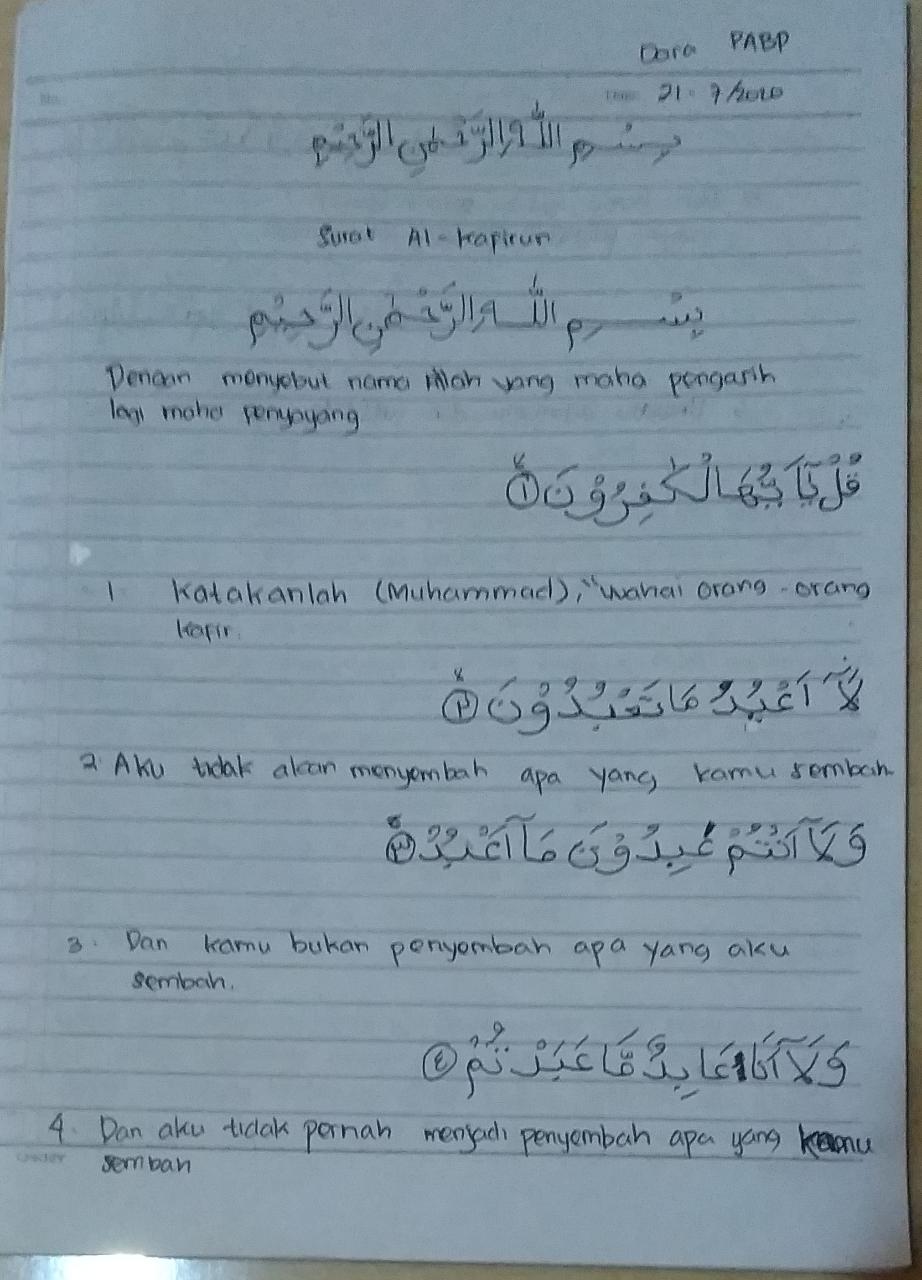 Dara PABP
21-7/2020
بِسْمِ اللّٰهِ الرَّحْمٰنِ الرَّحِيْمِ
Surat Al-kapirun
بِسْمِ اللّٰهِ الرَّحْمٰنِ الرَّحِيْمِ
Dengan menyebut nama Allah yang maha pengasih
lagi maha penyayang
قُلْ يٰٓاَيُّهَا الْكٰفِرُوْنَ ①
1 Katakanlah (Muhammad), "wahai orang-orang
kafir.
لَآ اَعْبُدُ مَا تَعْبُدُوْنَ ②
2. Aku tidak akan menyembah apa yang kamu sembah
وَلَآ اَنْتُمْ عٰبِدُوْنَ مَآ اَعْبُدُ ③
3. Dan kamu bukan penyembah apa yang aku
sembah.
وَلَآ اَنَا۠ عَابِدٌ مَّا عَبَدْتُّمْ ④
4. Dan aku tidak pernah menjadi penyembah apa yang kamu
sembah